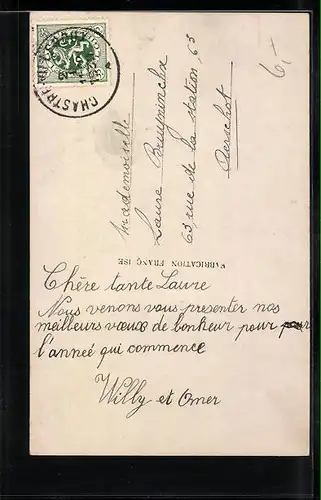 CHASTRE
6,-
Mademoiselle
Laure
63, rue de la station, 63
Aerschot
FABRICATION FRANÇAISE
Chère tante Laure
Nous venons vous presenter nos
meilleurs vœux de bonheur pour pour
l'anneé qui commence
Willy et Omer